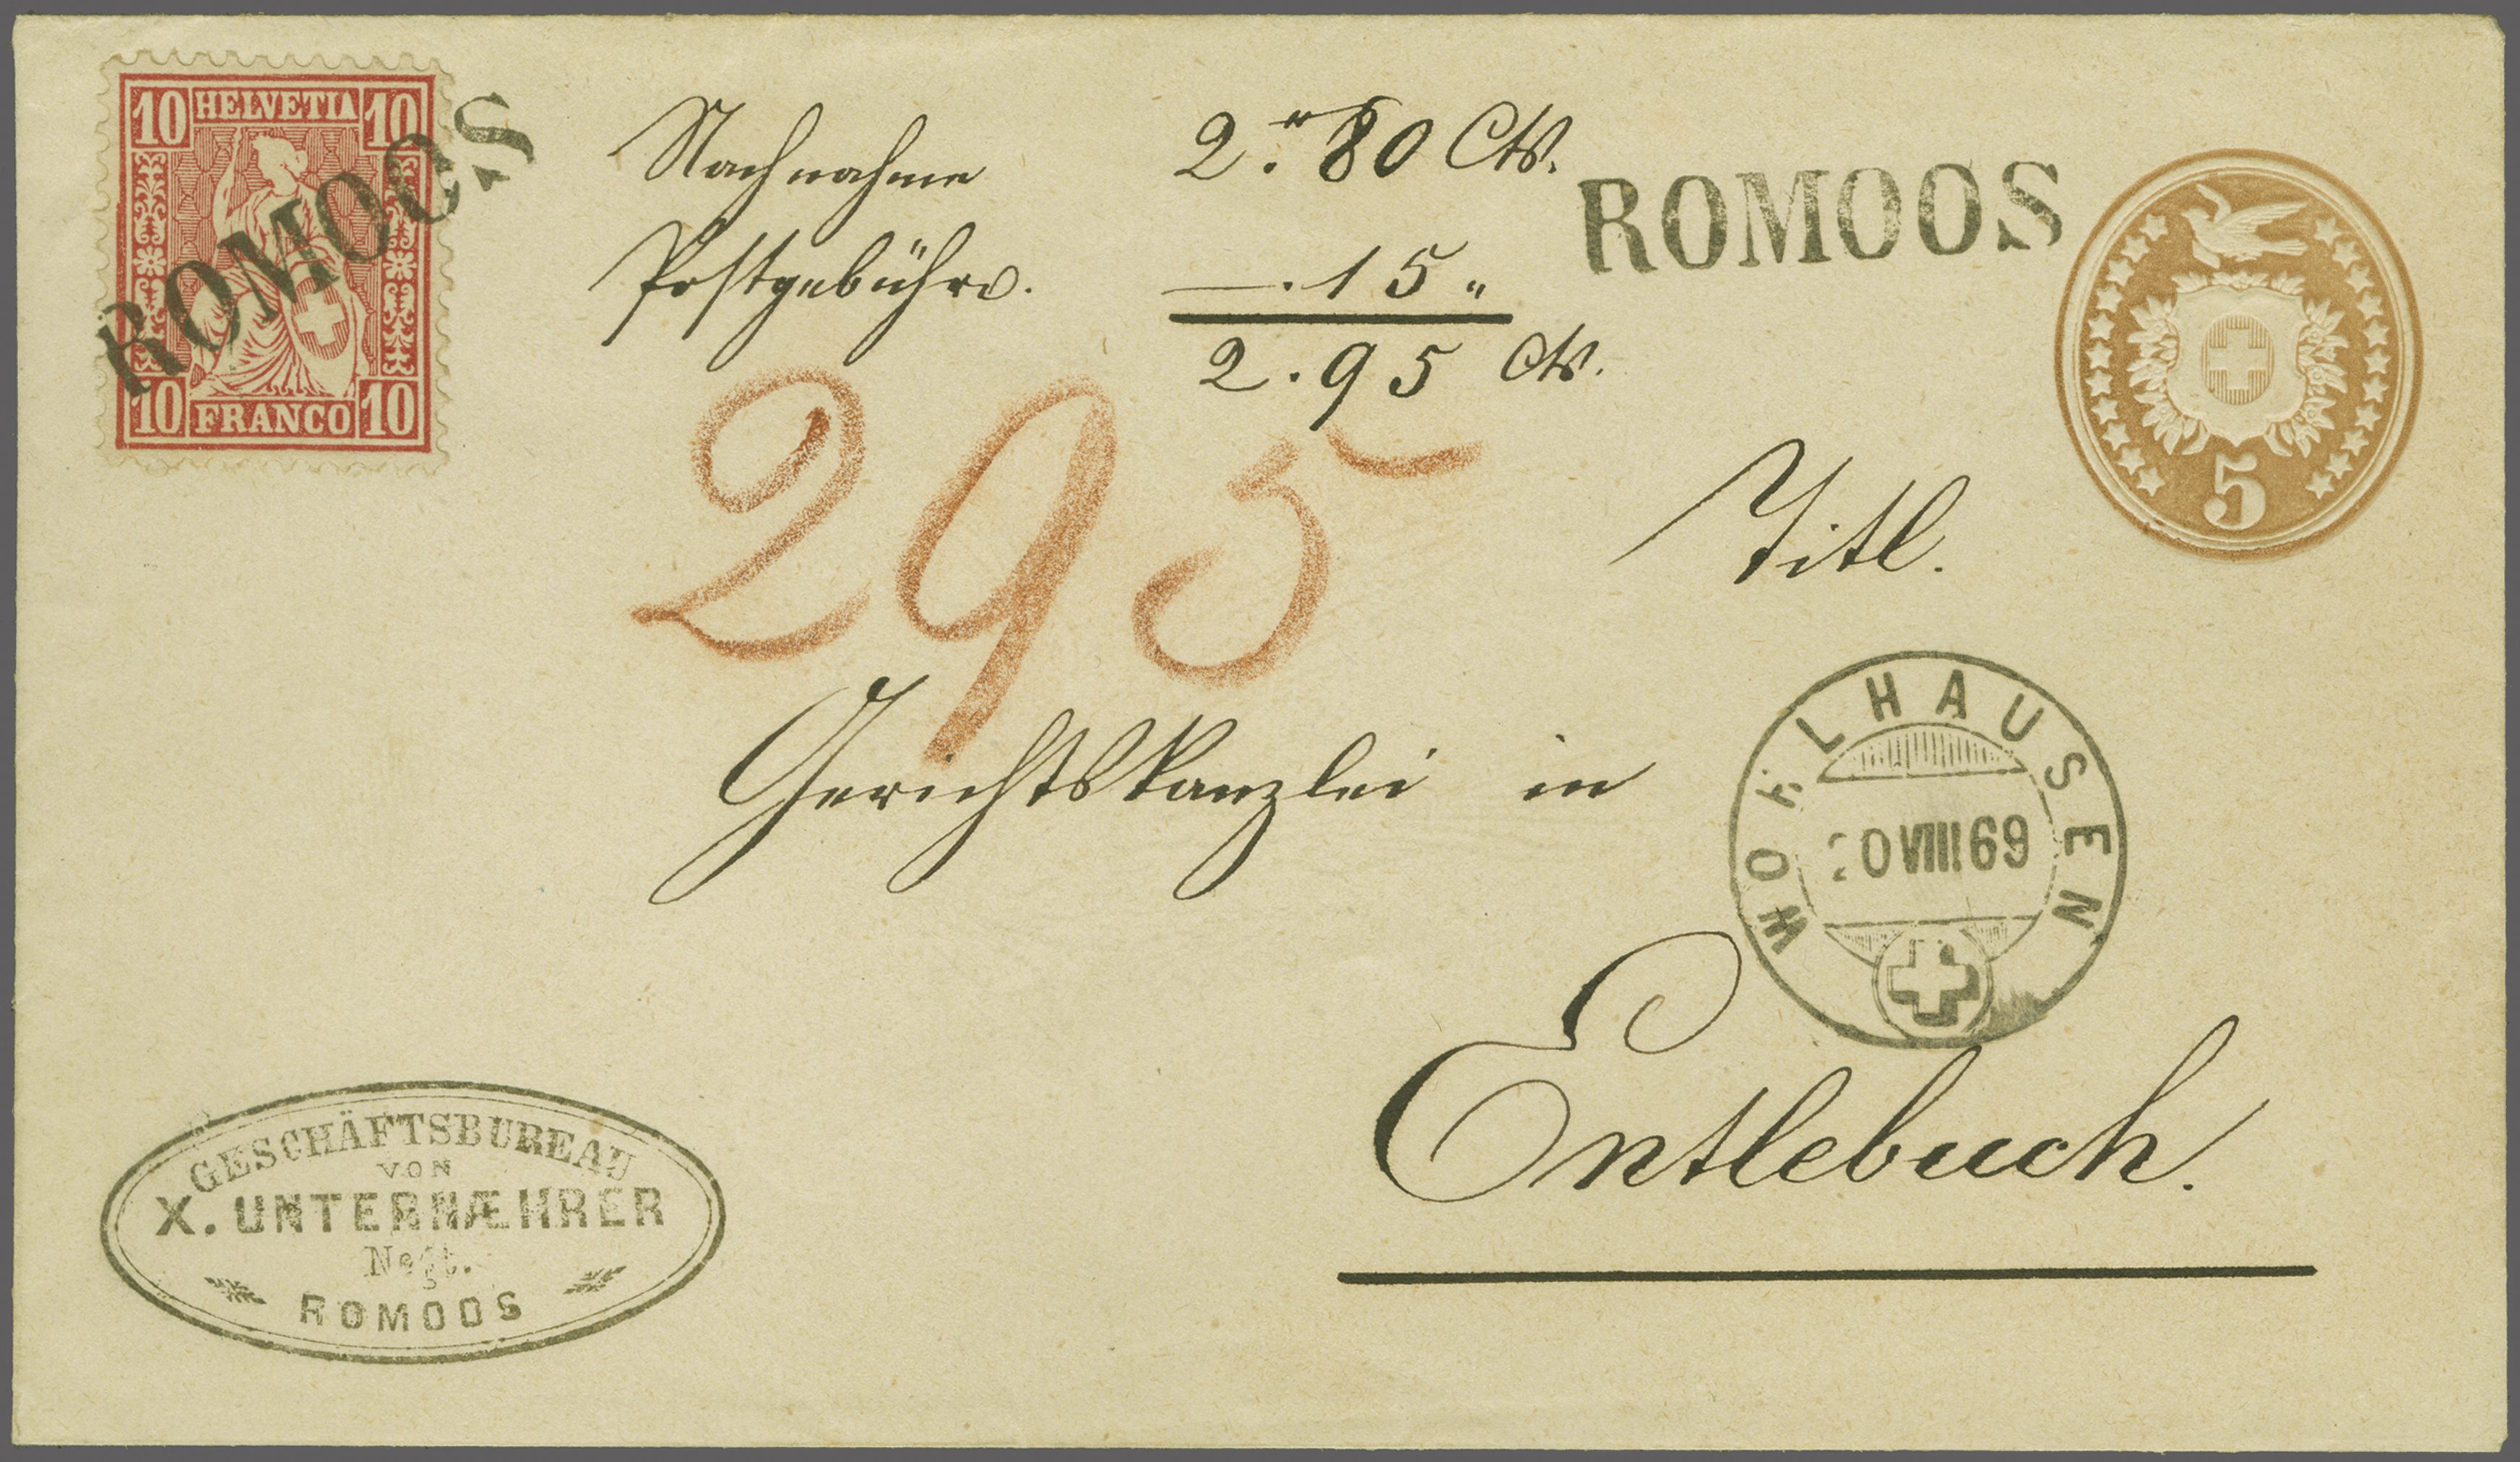 10 HELVETIA 10
10 FRANCO 10
ROMOOS
Nachnahme 2." 80 Cts.
Postgebühr. —. 15 "
2. 95 Cts.
ROMOOS
5
295
Titl.
Gerichtskanzlei in
WOHLHAUSEN
20 VIII 69
Entlebuch.
GESCHÄFTSBUREAU
VON
X. UNTERNÆHRER
ROMOOS